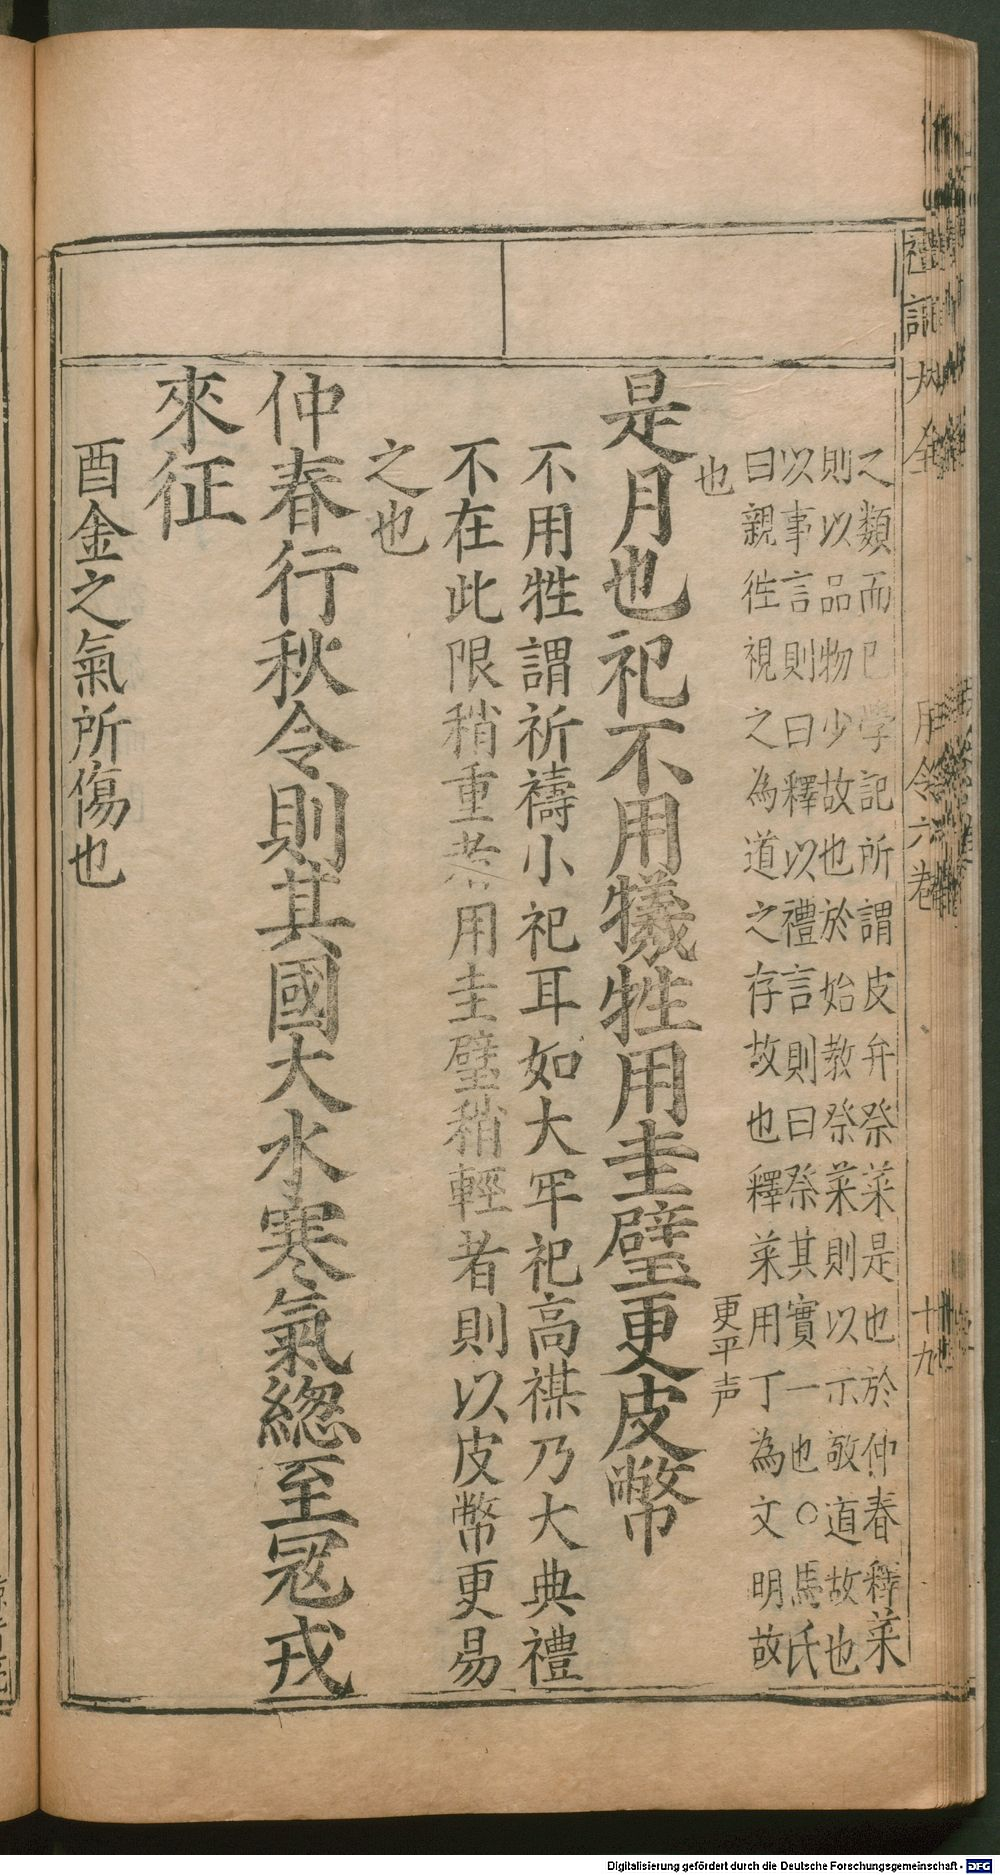 禮記大全
月令六卷
十九
之類而已學記所謂皮弁祭菜是也於仲春釋菜
則以品物少故也於始教祭菜則以示敬道故也
以事言則曰釋以禮言則曰祭其實一也○馬氏
曰親徃視之為道之存故也釋菜用丁為文明故
也
是月也祀不用犧牲用圭璧更皮幣
更平声
不用牲謂祈禱小祀耳如大牢祀高禖乃大典禮
不在此限稍重者用圭璧稍輕者則以皮幣更易
之也
仲春行秋令則其國大水寒氣緫至冦戎
來征
酉金之氣所傷也
Digitalisierung gefördert durch die Deutsche Forschungsgemeinschaft - DFG